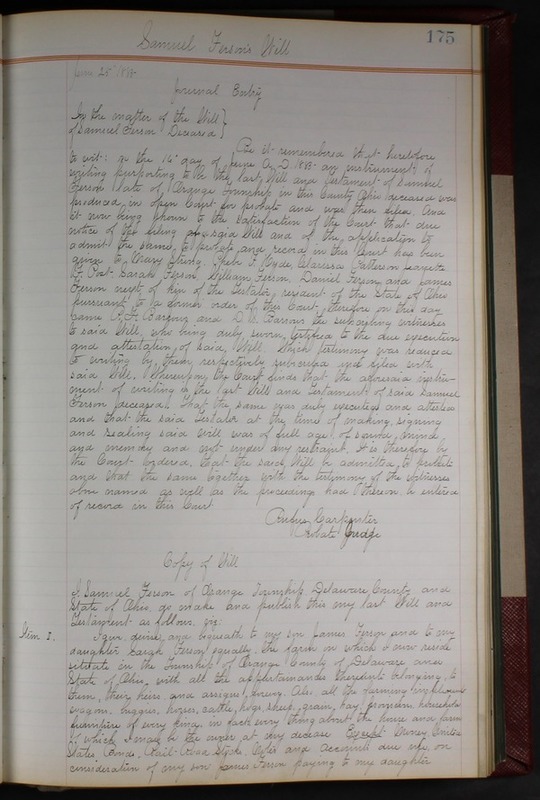 175
Samuel Ferson's Will
June 25" 1883
Journal Entry
In the matter of the Will }
of Samuel Ferson Deceased }
Be it remembered that heretofore
to wit: on the 14" day of June A.D. 1883 an instrument of
writing purporting to be the last Will and testament of Samuel
Ferson late of Orange Township in this County Ohio deceased was
produced in open Court for probate and was then filed. And
it now being shown to the satisfaction of the Court that due
notice of the filing of said Will and of the application to
admit the same to probate and record in this Court has been
given to Mary Strong, F. Hyde, Clarissa Patterson
Sarah Ferson, William Ferson, Daniel Ferson, and James
Ferson next of kin of the testator, resident of the State of Ohio
pursuant to a former order of this Court, therefore on this day
came and the subscribing witnesses
to said Will, who being duly sworn, testified to the due execution
and attestation of said Will. Which testimony was reduced
to writing by them respectively subscribed and filed with
said Will. Whereupon the Court finds that the aforesaid instru-
ment of writing is the last Will and Testament of said Samuel
Ferson deceased, that the same was duly executed and attested
and that the said Testator at the time of making, signing
and sealing said Will was of full age, of sound mind
and memory and not under any restraint. It is therefore by
the Court ordered, that the said Will be admitted to probate
and that the same together with the testimony of the witnesses
above named as well as the proceedings had thereon be entered
of record in this Court
Rufus Carpenter
Probate Judge
Copy of Will
I, Samuel Ferson of Orange Township, Delaware County and
State of Ohio, do make and publish this my last Will and
Testament as follows, viz:
Item I. I give devise and bequeath to my son James Ferson and to my
daughter Sarah Ferson equally the farm on which I now reside
situate in the Township of Orange County of Delaware and
State of Ohio, with all the appertainances thereunto belonging, to
them, their heirs and assigns forever. Also all the farming implements
wagons, buggies, horses, cattle, hogs, sheep, grain, hay, provision, household
furniture of every kind, in fact every thing about the house and farm
of which I may be the owner at my decease. Except Money, United
States Bonds, Rail-Road Stocks, Notes and accounts due me, on
consideration of my son James Ferson paying to my daughter